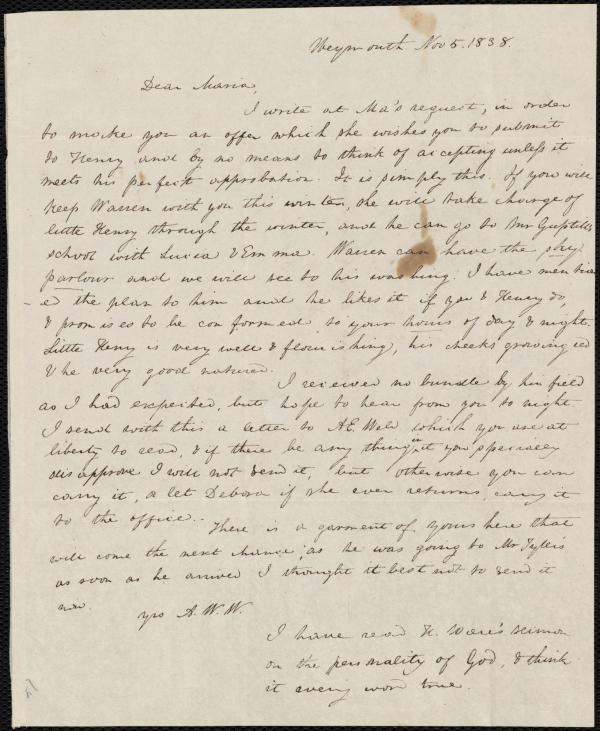 Weymouth Nov 5. 1838.
Dear Maria,
I write at Ma's request, in order
to make you an offer which she wishes you to submit
to Henry and by no means to think of accepting unless it
meets his perfect approbation. It is simply this. If you will
keep Warren with you this winter, she will take charge of
little Henry through the winter, and he can go to Mr
school with Lucia & Emma. Warren can have the
parlour and we will see to his washing. I have mention
ed the plan to him and he likes it if you & Henry do,
& promises to be conformed to your hours of day & night.
Little Henry is very well & flourishing, his cheeks growing red
& he very good natured.
I received no bundle by hinfield
as I had expected, but hope to hear from you to night
I send with this a letter to A E. Weld which you are at
liberty to read, & if there be any thing in it you specially
disapprove I will not send it, but otherwise you can
carry it, or let Debora if she ever returns, carry it
to the office.
There is a garment of yours here that
will come the next chance; as he was going to Mr Tyler's
as soon as he arrived I thought it best not to send it
now.
yrs A. W. W.
I have read H. Ware's sermon
on the personality of God, & think
it every word true.